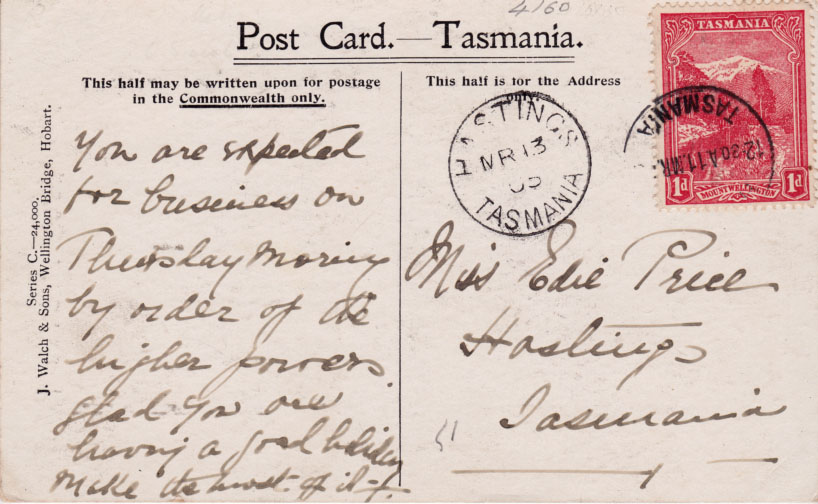 4/60
Post Card.—Tasmania.
This half may be written upon for postage
in the Commonwealth only.
This half is for the Address
Series C.—24,000.
J. Walch & Sons, Wellington Bridge, Hobart.
You are expected
for business on
Thursday Morning
by order of the
higher powers
glad you are
having a good holiday
make the most of it
HASTINGS
MR 13
05
TASMANIA
TASMANIA
1d
MOUNT WELLINGTON
1d
TASMANIA
12.30 A 11 MR
Miss Edie Price
Hastings
Tasmania